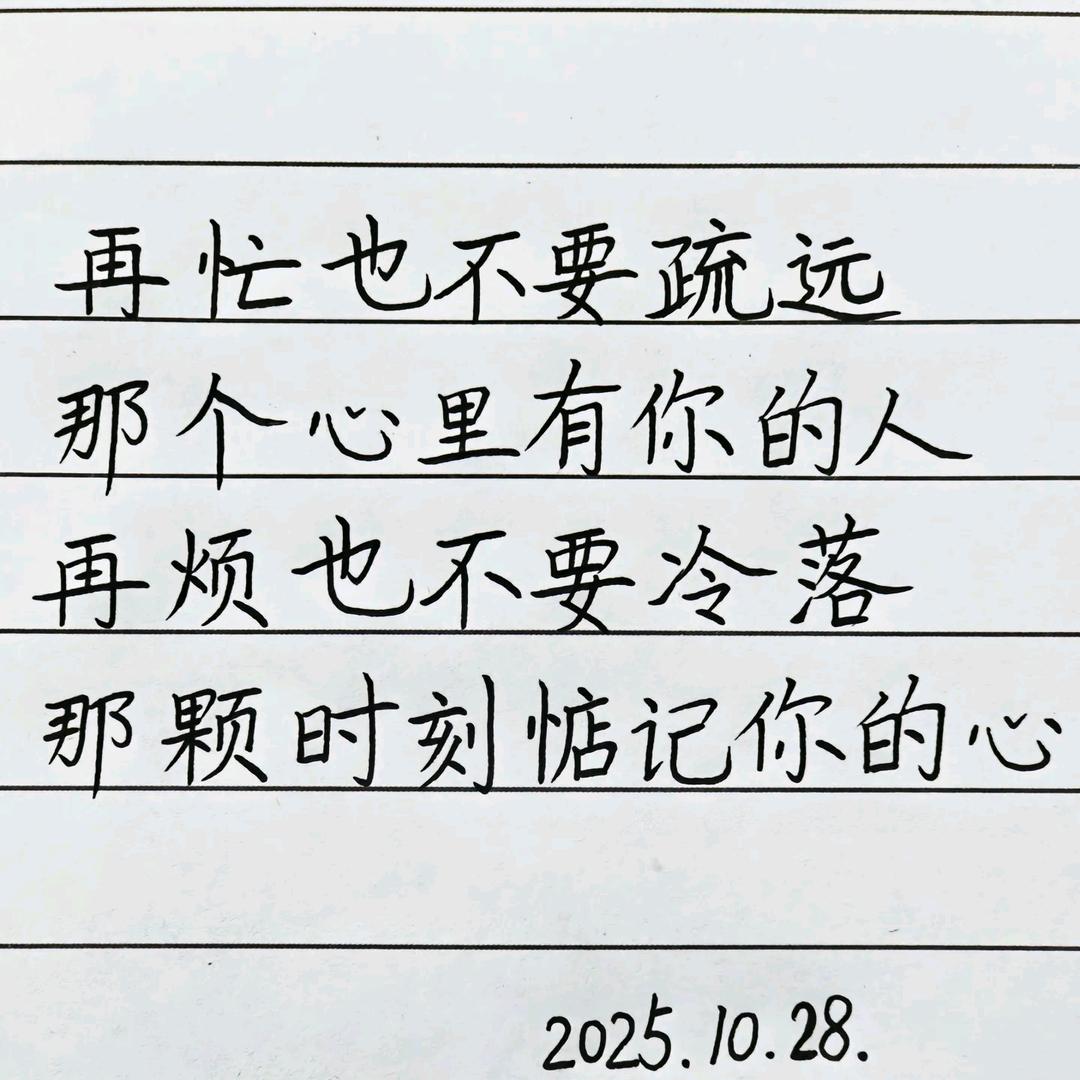 再忙也不要疏远
那个心里有你的人
再烦也不要冷落
那颗时刻惦记你的心
2025.10.28.